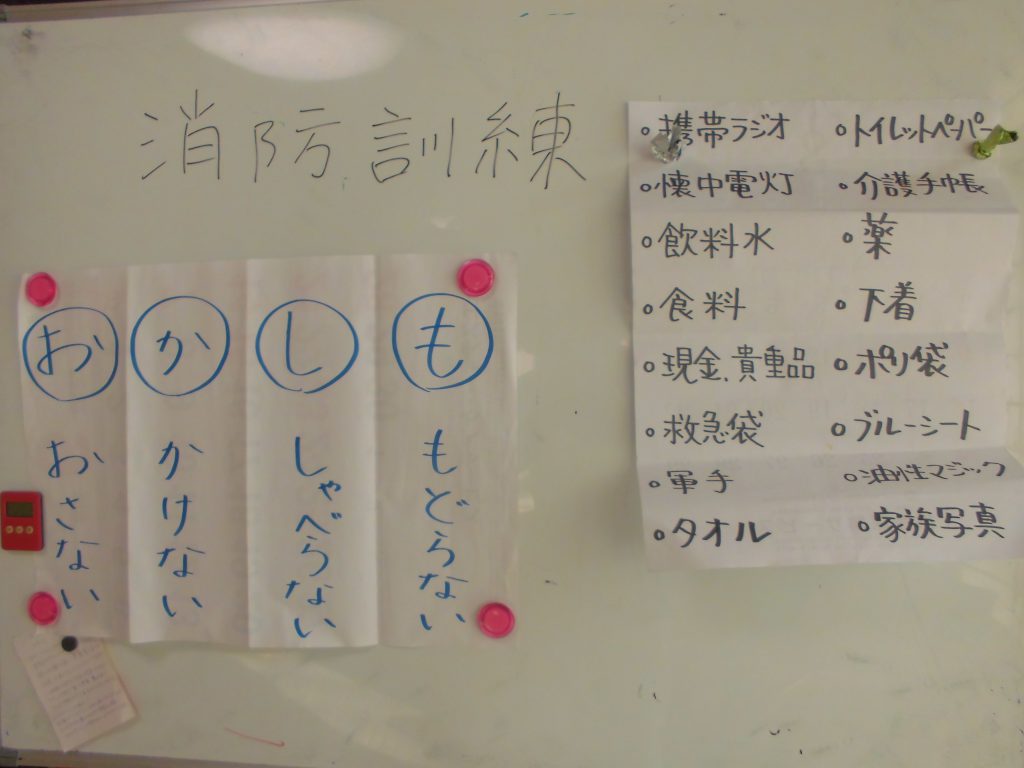 消防訓練
お か し も
おさない
かけない
しゃべらない
もどらない
○携帯ラジオ
○懐中電灯
○飲料水
○食料
○現金、貴重品
○救急袋
○軍手
○タオル
○トイレットペーパー
○介護手帳
○薬
○下着
○ポリ袋
○ブルーシート
○油性マジック
○家族写真